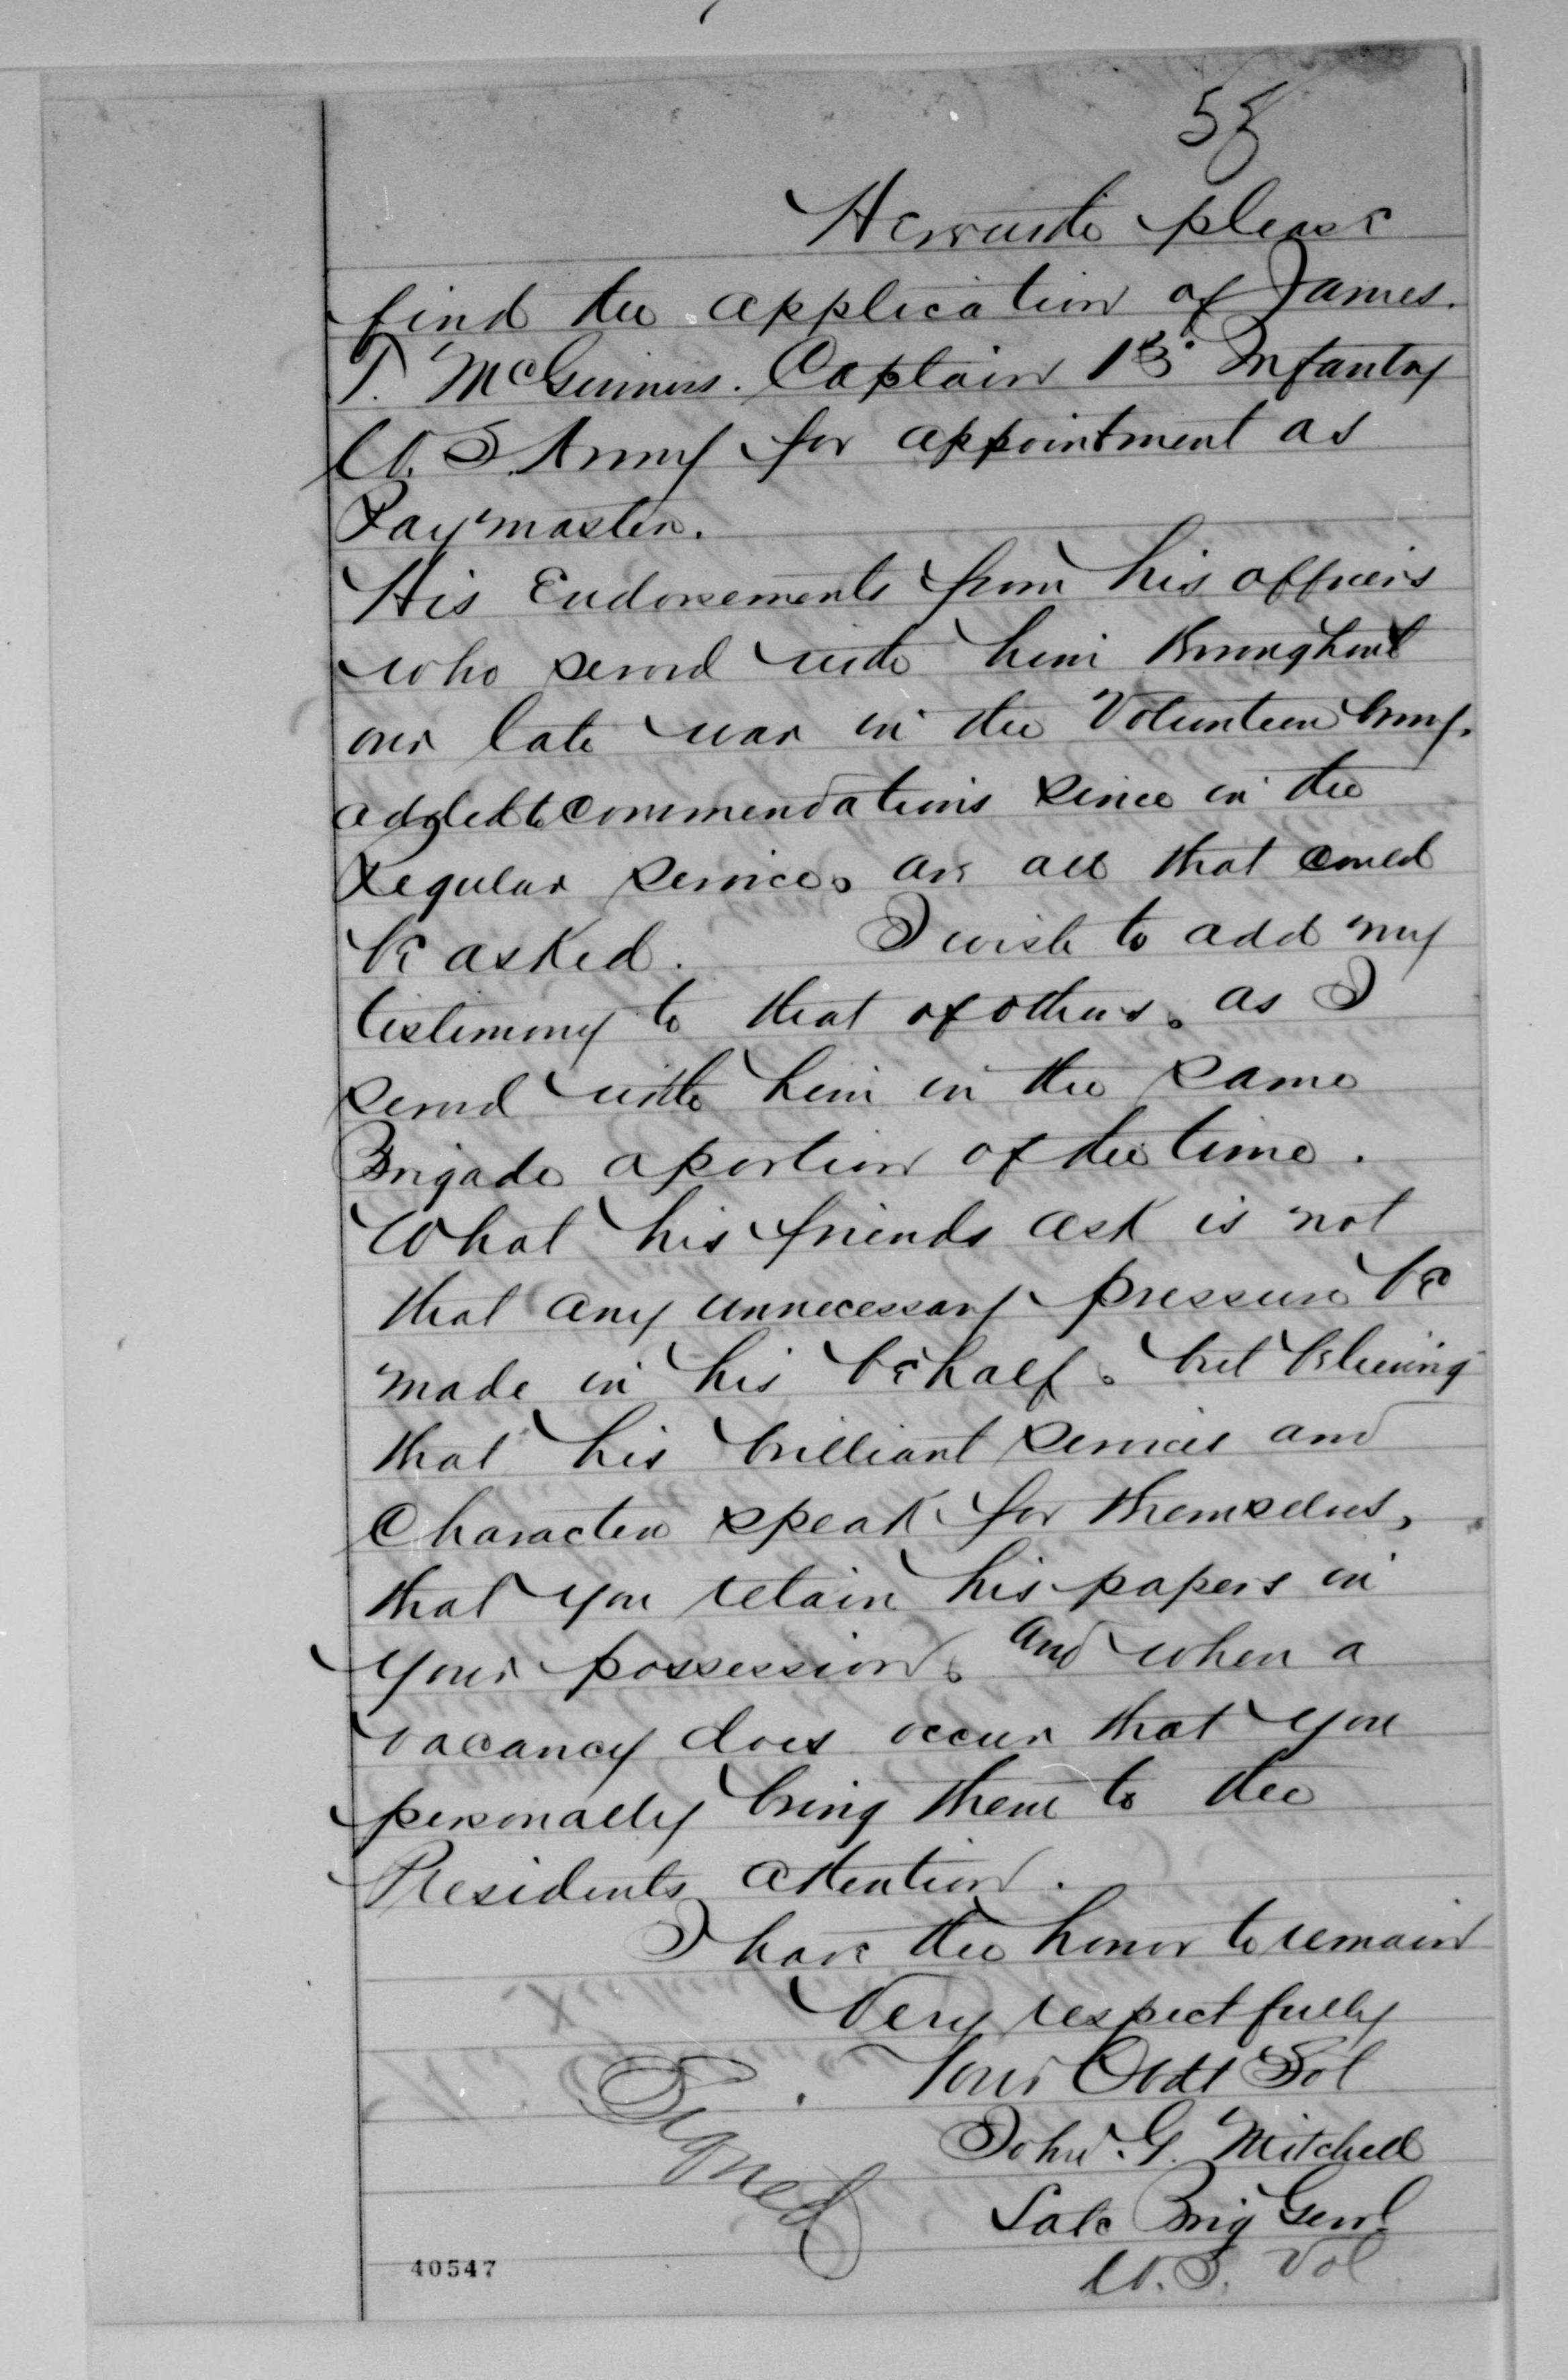 58
Herewith please
find the application of James.
T. McGinniss. Captain 13" Infantry
U. S. Army for appointment as
Paymaster.
His Endorsements from his officers
who served with him throughout
our late war in the Volunteer Army.
added to commendations since in the
Regular service, are all that could
be asked. I wish to add my
testimony to that of others, as I
served with him in the same
Brigade a portion of the time.
What his friends ask is not
that any unnecessary pressure be
made in his behalf, but believing
that his brilliant services and
Character speak for themselves,
that you retain his papers in
your possession, and when a
vacancy does occur that you
personally bring them to the
Presidents attention.
I have the honor to remain
Very respectfully
Your Obdt Svt
Signed John G. Mitchell
Late Brig Genl
U. S. Vol
40547